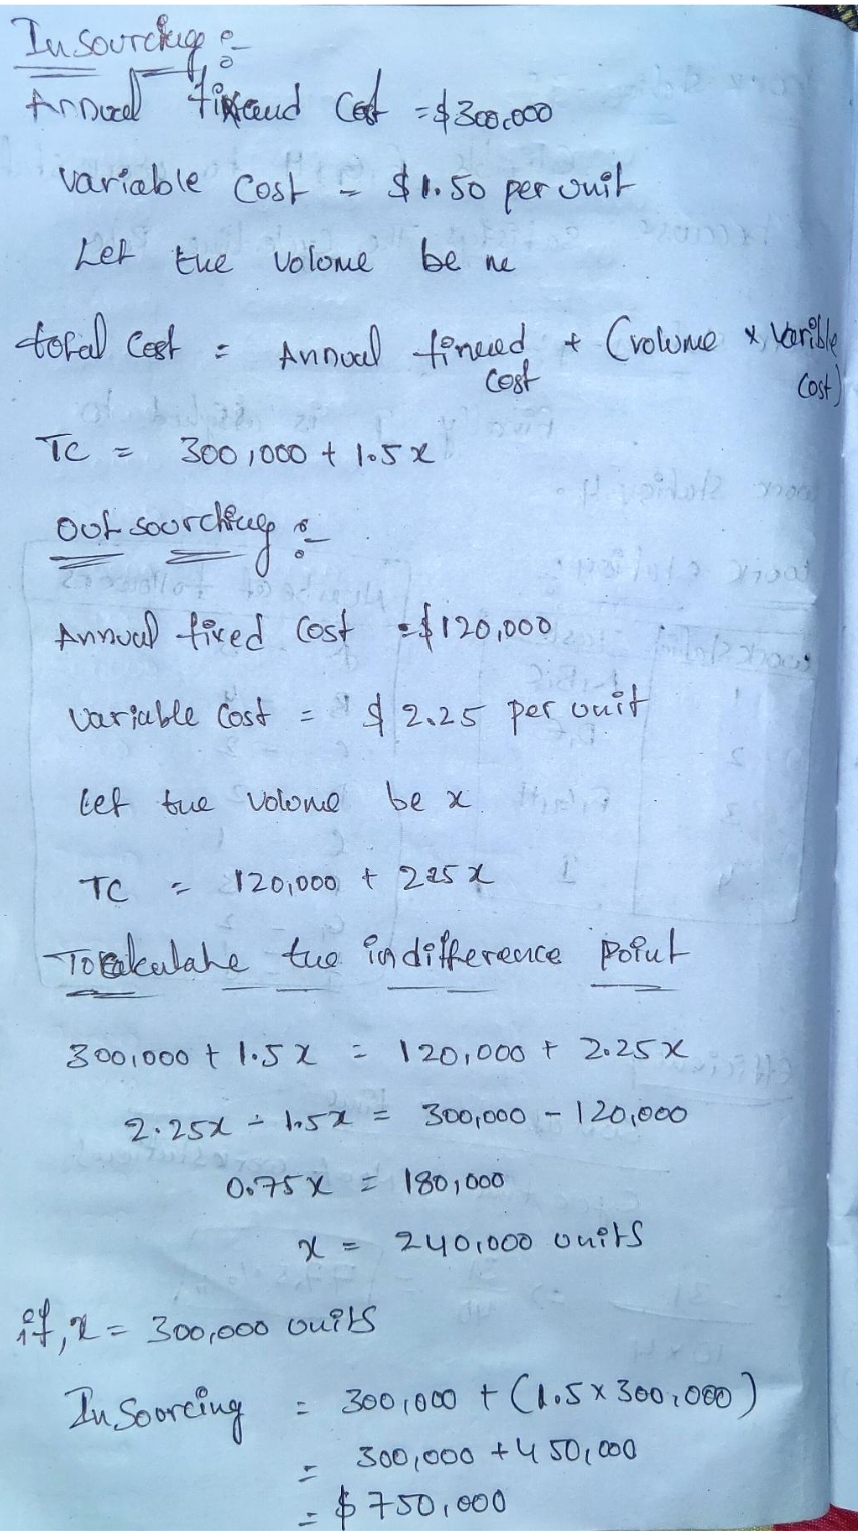 Insourcing :-
Annual fixed Cost = $300,000
Variable Cost = $1.50 per unit
Let the volume be x
total Cost = Annual fixed cost + (volume x Varible Cost)
TC = 300,000 + 1.5x
Out sourcing :-
Annual fixed Cost = $120,000
Variable Cost = $ 2.25 per unit
Let the volume be x
TC = 120,000 + 225x
To calculate the indifference point
300,000 + 1.5x = 120,000 + 2.25x
2.25x - 1.5x = 300,000 - 120,000
0.75x = 180,000
x = 240,000 units
if, x = 300,000 units
Insourcing = 300,000 + (1.5 x 300,000)
= 300,000 + 450,000
= $ 750,000